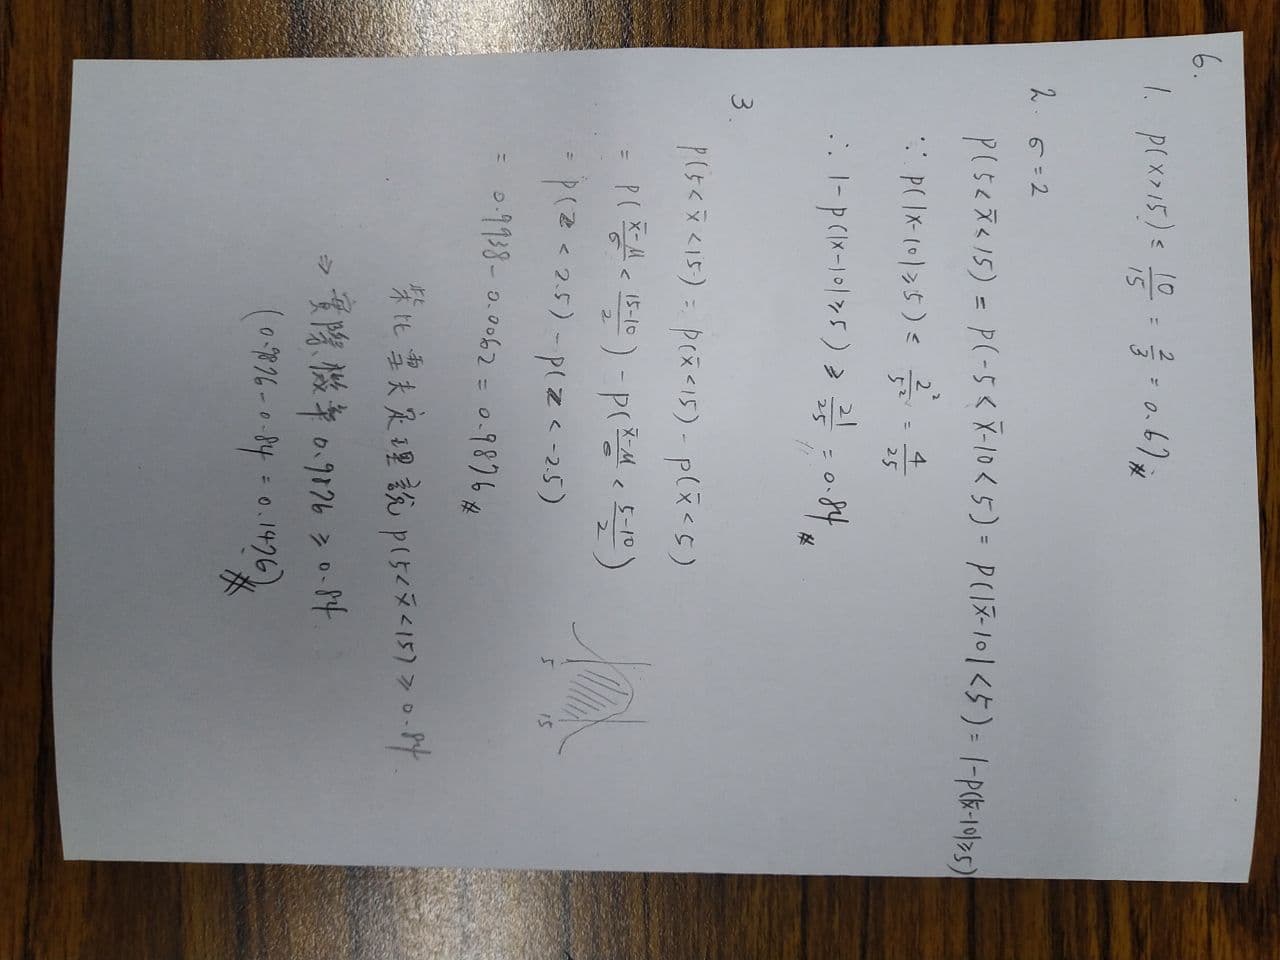 6.
1. P(x>15) ≤ 10/15 = 2/3 = 0.67 #
2. σ=2
P(5<x̄<15) = P(-5<x̄-10<5) = P(|x̄-10|<5) = 1-P(|x̄-10|≥5)
∵ P(|x-10|≥5) ≤ 2²/5² = 4/25
∴ 1-P(|x-10|≥5) ≥ 21/25 = 0.84 #
3.
P(5<x̄<15) = P(x̄<15) - P(x̄<5)
= P(x̄-μ/σ < 15-10/2) - P(x̄-μ/σ < 5-10/2)
= P(Z<2.5) - P(Z<-2.5)
5 15
= 0.9938 - 0.0062 = 0.9876 #
柴比雪夫定理說 P(5<x̄<15) ≥ 0.84
⇒ 實際機率 0.9876 ≥ 0.84
(0.9876 - 0.84 = 0.1476) #